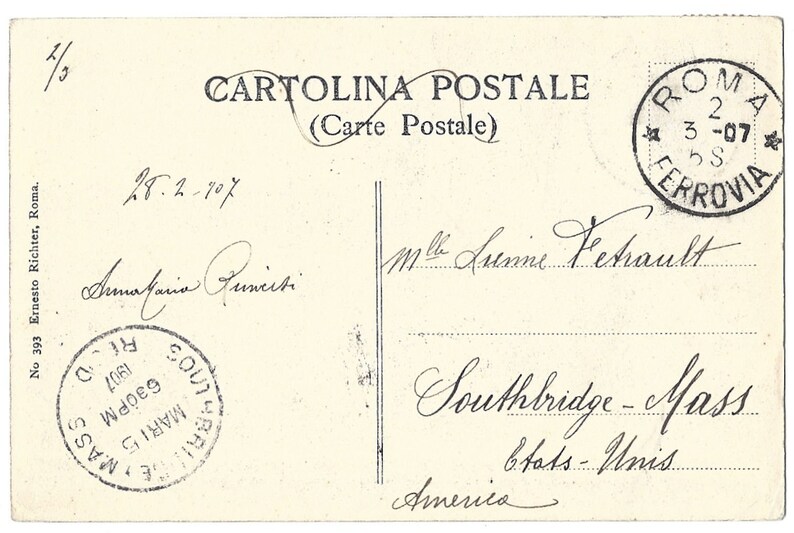 2/3
CARTOLINA POSTALE
(Carte Postale)
ROMA
2
3 -07
5S
FERROVIA
28.2.907
No 393 Ernesto Richter, Roma.
Mlle Lienne Tetrault
Anna Maria
SOUTHBRIDGE, MASS
MAR 15
630PM
1907
REC'D
Southbridge - Mass
Etats-Unis
America